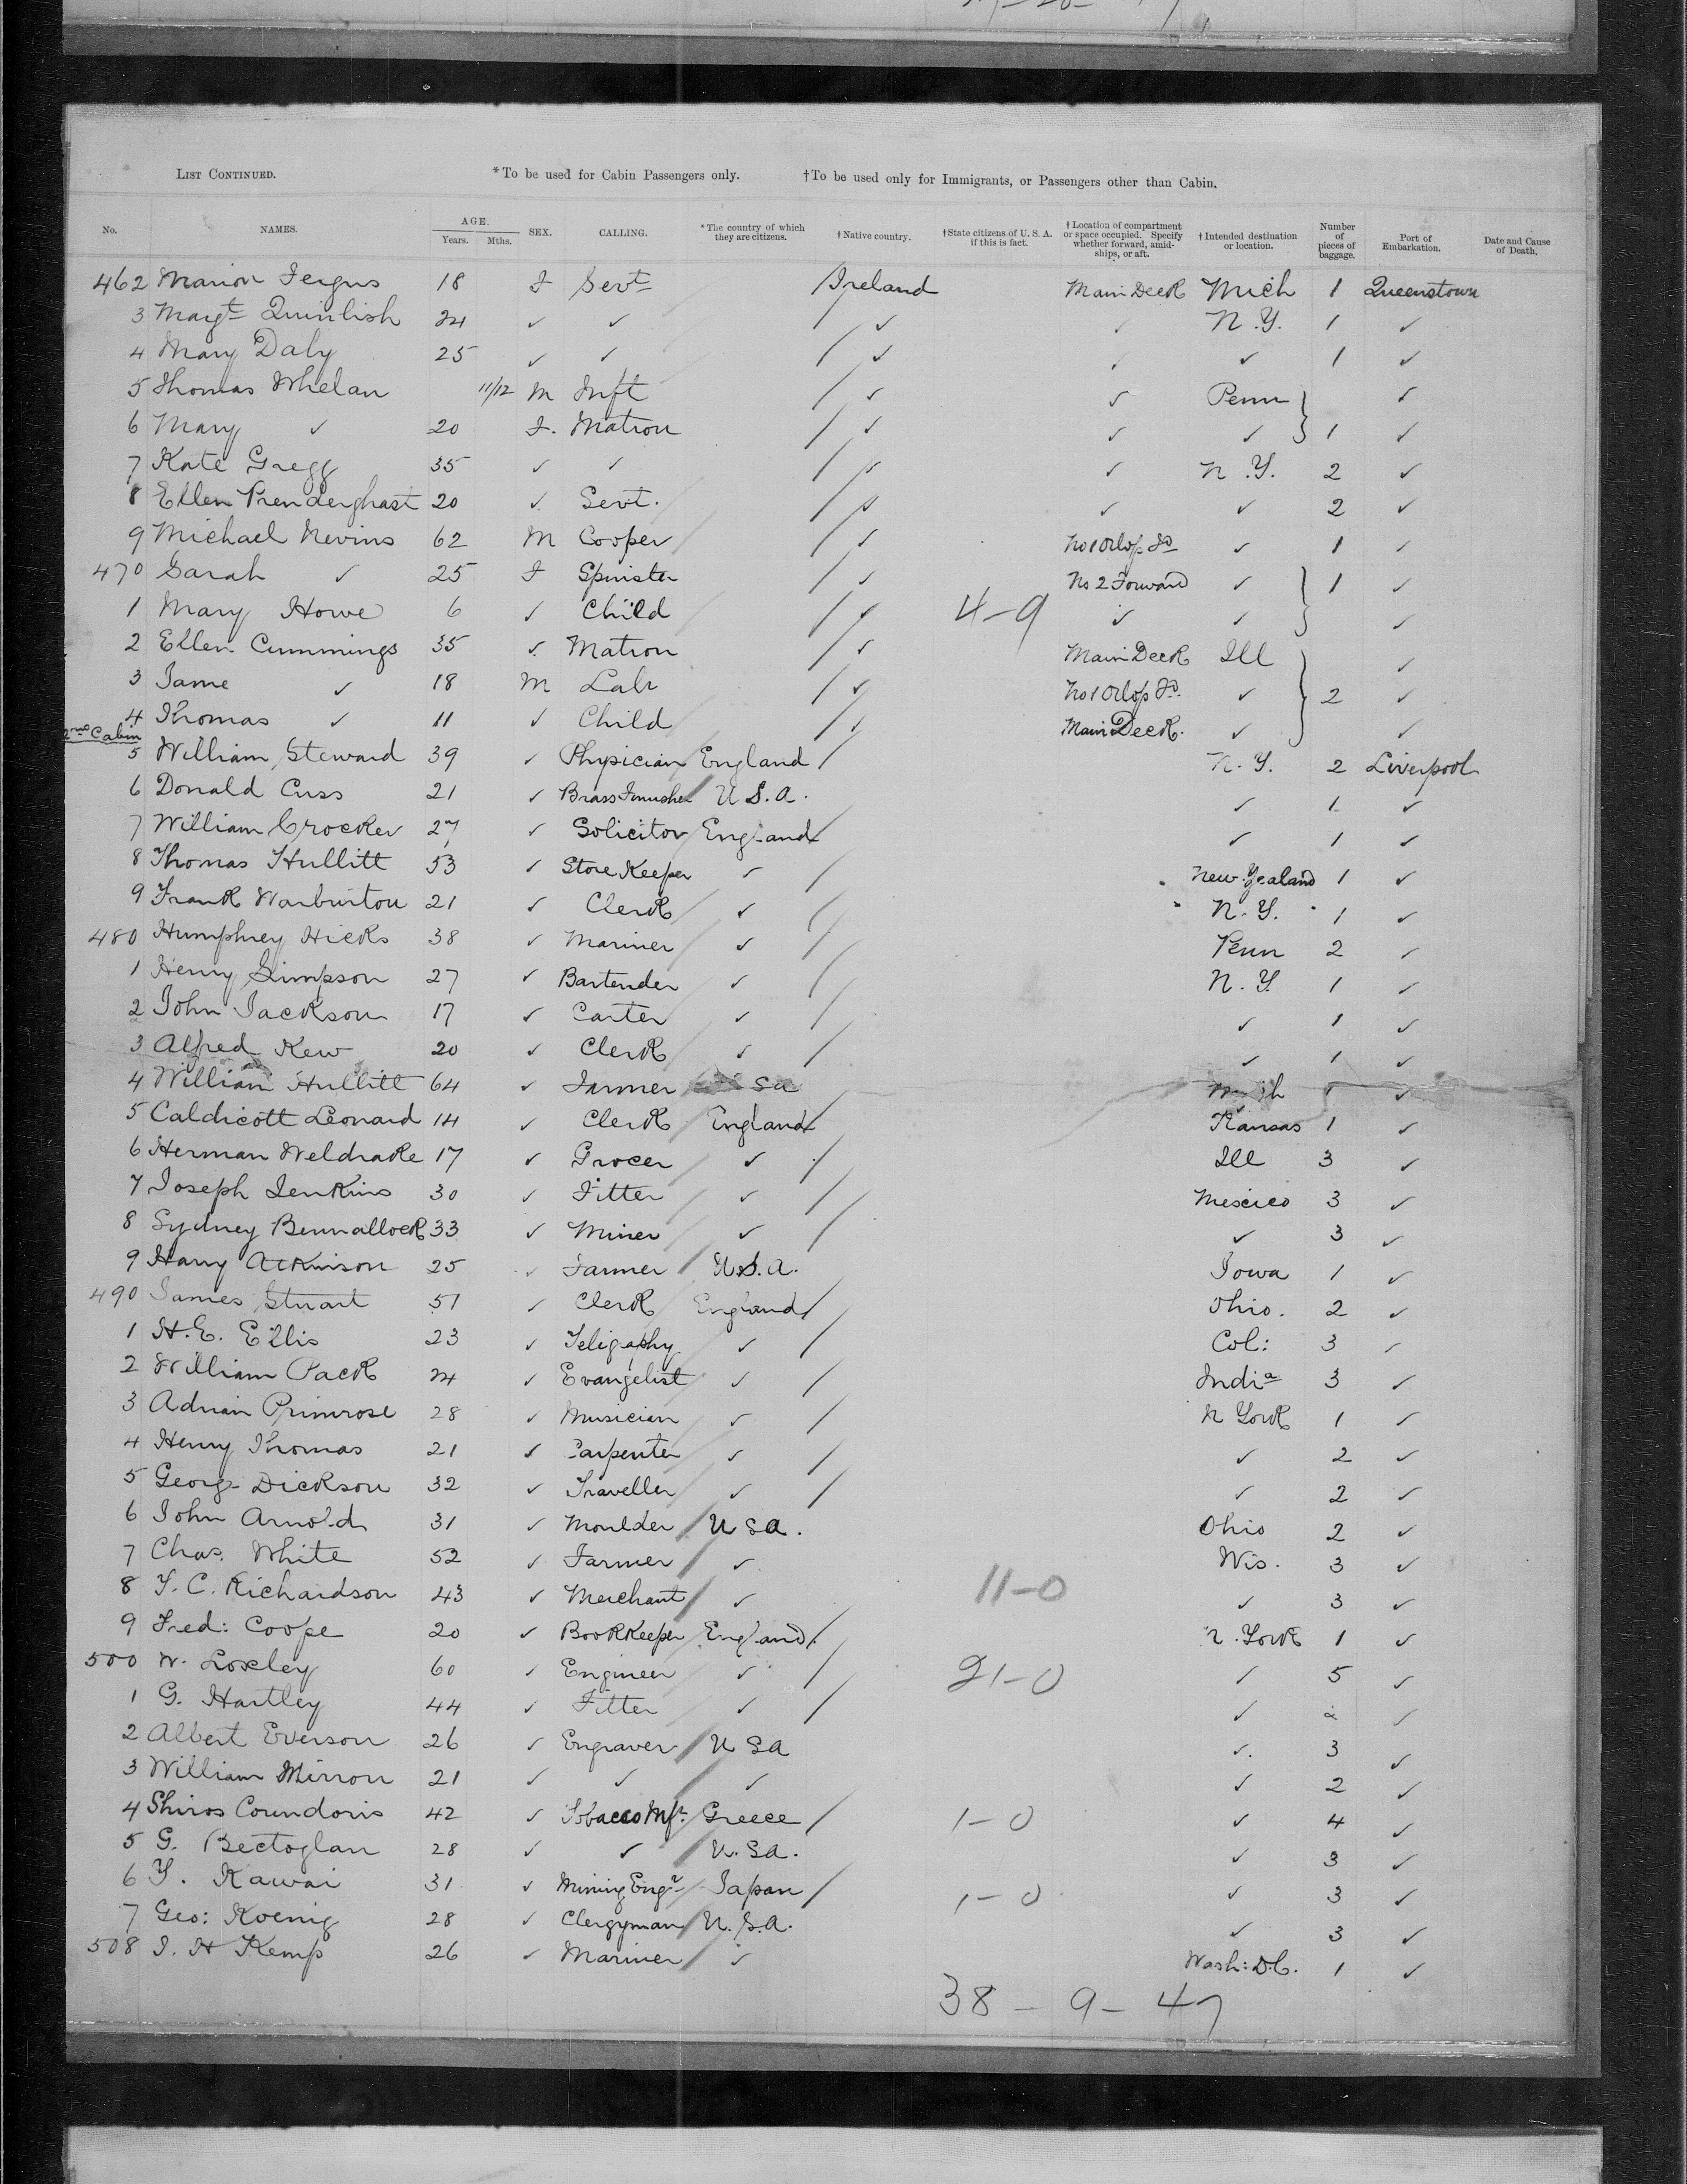 LIST CONTINUED. *To be used for Cabin Passengers only. †To be used only for Immigrants, or Passengers other than Cabin.
No. NAMES. AGE. Years. Mths. SEX. CALLING. *The country of which they are citizens. †Native country. †State citizens of U. S. A. if this is fact. †Location of compartment or space occupied. Specify whether forward, amidships, or aft. †Intended destination or location. Number of pieces of baggage. Port of Embarkation. Date and Cause of Death.
462 Marion Fergus 18 F Servt Ireland Main Deck Mich 1 Queenstown
3 Margt Quinlish 24 ✓ ✓ / ✓ ✓ N.Y. 1 ✓
4 Mary Daly 25 ✓ ✓ / ✓ ✓ ✓ 1 ✓
5 Thomas Whelan 11/12 M Inft / ✓ ✓ Penn } ✓
6 Mary ✓ 20 F. Matron / ✓ ✓ ✓ } 1 ✓
7 Kate Gregg 35 ✓ ✓ / ✓ ✓ N.Y. 2 ✓
8 Ellen Prenderghast 20 ✓ Servt. / ✓ ✓ ✓ 2 ✓
9 Michael Nevins 62 M Cooper / ✓ No 1 Orlop Fd ✓ 1 ✓
470 Sarah ✓ 25 F Spinster / ✓ No 2 Forward ✓ } 1 ✓
1 Mary Howe 6 ✓ Child / ✓ 4-9 ✓ ✓ } ✓
2 Ellen Cummings 35 ✓ Matron / ✓ Main Deck Ill } ✓
3 Jame ✓ 18 M Labr / ✓ No 1 Orlop Fd. ✓ } 2 ✓
4 Thomas ✓ 11 ✓ Child / ✓ Main Deck. ✓ } ✓
2nd Cabin
5 William Steward 39 ✓ Physician England / N.Y. 2 Liverpool
6 Donald Cuss 21 ✓ Brass Finisher U.S.A. ✓ 1 ✓
7 William Crocker 27 ✓ Solicitor England / ✓ 1 ✓
8 Thomas Hullitt 53 ✓ Store Keeper ✓ / New Zealand 1 ✓
9 Frank Warburton 21 ✓ Clerk ✓ / N.Y. 1 ✓
480 Humphrey Hicks 38 ✓ Mariner ✓ / Penn 2 ✓
1 Henry Simpson 27 ✓ Bartender ✓ / N.Y. 1 ✓
2 John Jackson 17 ✓ Carter ✓ / ✓ 1 ✓
3 Alfred Kew 20 ✓ Clerk ✓ / ✓ 1 ✓
4 William Hullitt 64 ✓ Farmer Sa ✓
5 Caldicott Leonard 14 ✓ Clerk England / Kansas 1 ✓
6 Herman Weldrake 17 ✓ Grocer ✓ / Ill 3 ✓
7 Joseph Jenkins 30 ✓ Fitter ✓ / Mexico 3 ✓
8 Sydney Bennallock 33 ✓ Miner ✓ / ✓ 3 ✓
9 Harry Atkinson 25 ✓ Farmer U.S.A. Iowa 1 ✓
490 James Stuart 51 ✓ Clerk England / Ohio. 2 ✓
1 H.E. Ellis 23 ✓ Teligraphy ✓ / Col: 3 ✓
2 William Pack 24 ✓ Evangelist ✓ / India 3 ✓
3 Adrian Primrose 28 ✓ Musician ✓ / N York 1 ✓
4 Henry Thomas 21 ✓ Carpenter ✓ / ✓ 2 ✓
5 George Dickson 32 ✓ Traveller ✓ / ✓ 2 ✓
6 John Arnold 31 ✓ Moulder U Sa. Ohio 2 ✓
7 Chas. White 52 ✓ Farmer ✓ Wis. 3 ✓
8 Y. C. Richardson 43 ✓ Merchant ✓ 11-0 ✓ 3 ✓
9 Fred: Coope 20 ✓ Bookkeeper England / N. York 1 ✓
500 W. Loxley 60 ✓ Engineer ✓ / 21-0 ✓ 5 ✓
1 G. Hartley 44 ✓ Fitter ✓ / ✓ 2 ✓
2 Albert Everson 26 ✓ Engraver U Sa ✓ 3 ✓
3 William Mirron 21 ✓ ✓ ✓ ✓ 2 ✓
4 Shiros Coundoris 42 ✓ Tobacco Mfr. Greece / 1-0 ✓ 4 ✓
5 G. Bectoglan 28 ✓ ✓ U.Sa. ✓ 3 ✓
6 Y. Kawai 31 ✓ Mining Engr Japan / 1-0 ✓ 3 ✓
7 Geo: Koenig 28 ✓ Clergyman U.S.A. ✓ 3 ✓
508 J. H Kemp 26 ✓ Mariner ✓ Wash: D.C. 1 ✓
38 - 9 - 47